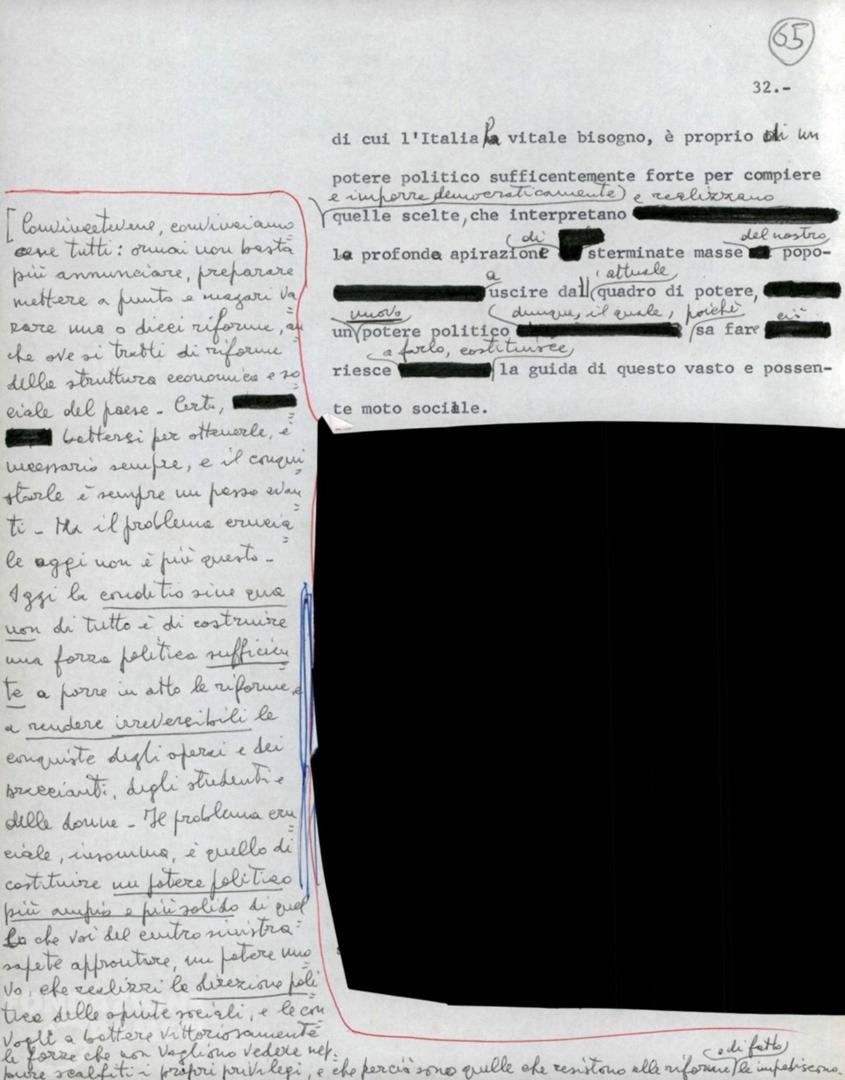 65
32.-
di cui l'Italia ha vitale bisogno, è proprio di un
potere politico sufficentemente forte per compiere
e imporre democraticamente e realizzano
quelle scelte, che interpretano
di del nostro
la profonda apirazione sterminate masse popo-
a attuale
uscire dal quadro di potere,
nuovo dunque, il quale, poichè ciò
un potere politico sa fare
a farlo, costituisce
riesce la guida di questo vasto e possen-
te moto sociale.
[Convincetevene, convinciamo
cene tutti: ormai non basta
più annunciare, preparare
mettere a punto e magari va
rare una o dieci riforme, an
che ove si tratti di riforme
della struttura economica e so
ciale del paese - Certo,
battersi per ottenerle, è
necessario sempre, e il conqui
starle è sempre un passo avan
ti - Ma il problema crucia
le oggi non è più questo -
Oggi la conditio sine qua
non di tutto è di costruire
una forza politica sufficien
te a porre in atto le riforme, e
a rendere irreversibili le
conquiste degli operai e dei
braccianti, degli studenti e
delle donne - Il problema cru
ciale, insomma, è quello di
costituire un potere politico
più ampio e più solido di quel
lo che voi del centro sinistra
sapete approntare, un potere nuo
vo, che realizzi la direzione poli
tica delle spinte sociali, e le con
vogli a battere vittoriosamente
le forze che non vogliono vedere nep.
e di fatto
pure scalfiti i propri privilegi, e che perciò sono quelle che resistono alle riforme, le impediscono.